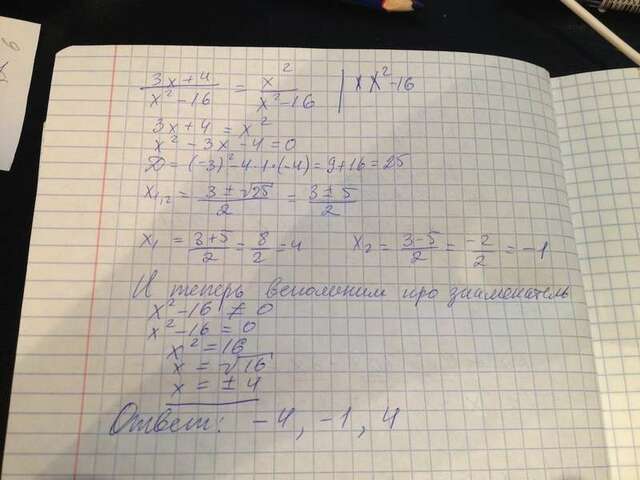 (3x+4)/(x²-16) = x²/(x²-16) | x x²-16
3x+4 = x²
x²-3x-4=0
D=(-3)²-4·1·(-4)=9+16=25
x₁,₂ = (3±√25)/2 = (3±5)/2
x₁ = (3+5)/2 = 8/2 = 4 x₂ = (3-5)/2 = -2/2 = -1
И теперь вспомним про знаменатель
x²-16 ≠ 0
x²-16 = 0
x² = 16
x = √16
x = ±4
Ответ: -4, -1, 4